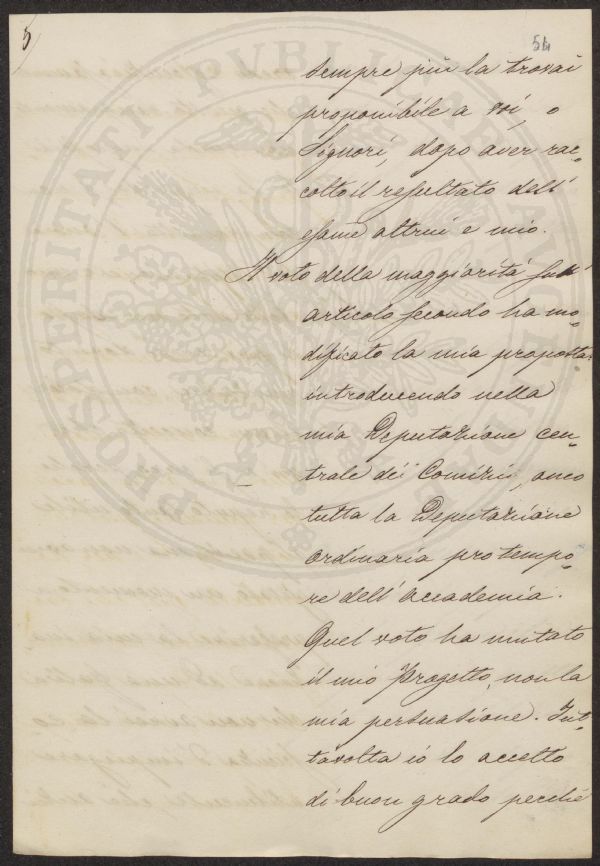 5
54
sempre più la trovai
proponibile a voi, o
Signori, dopo aver rac-
colto il resultato dell'
esame altrui e mio.
Il voto della maggiorità sull'
articolo secondo ha mo-
dificato la mia proposta:
introducendo nella
mia Deputazione cen-
trale dei Comizii, anco
tutta la Deputazione
ordinaria pro tempo-
re dell'Accademia.
Quel voto ha mutato
il mio Progetto, non la
mia persuasione. Tut-
tavolta io lo accetto
di buon grado perchè
PROSPERITATI PVBLICAE AVGENDAE